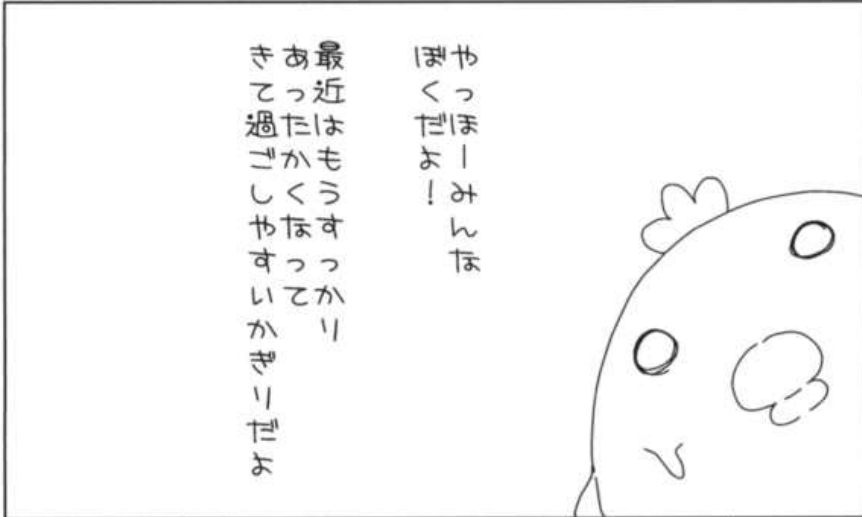 やっほーみんな
ぼくだよ！
最近はもうすっかり
あったかくなって
きて過ごしやすいかぎりだよ